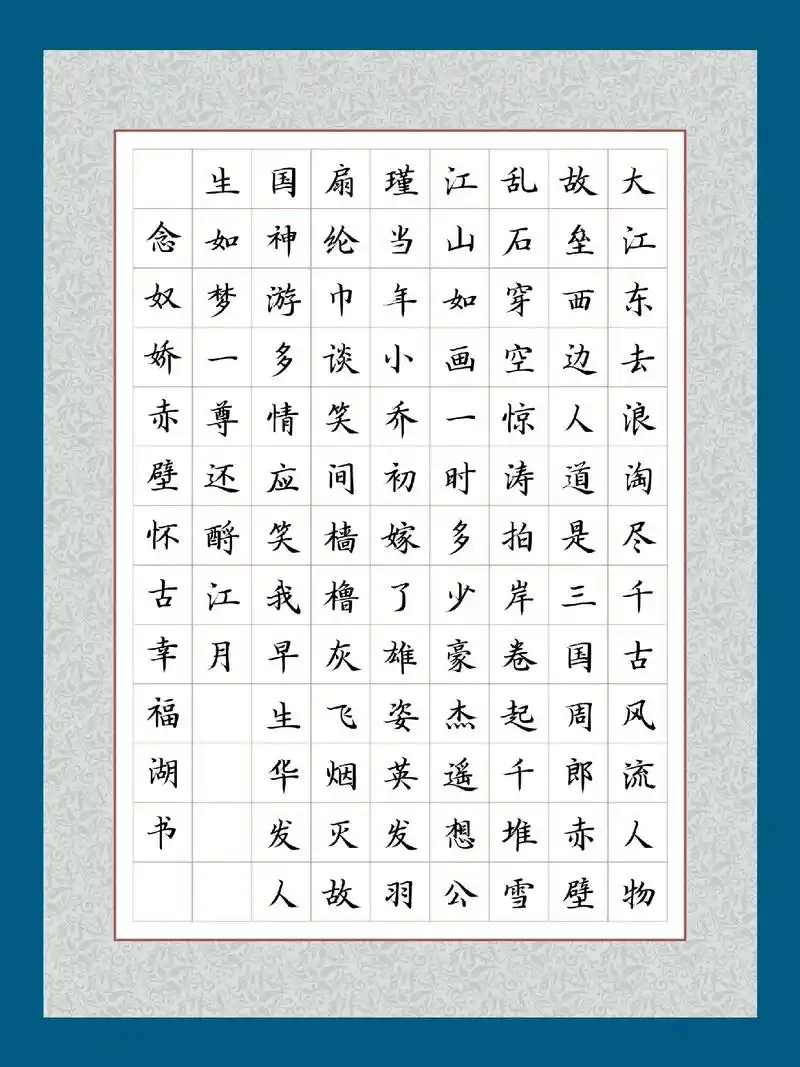 大江东去浪淘尽千古风流人物
故垒西边人道是三国周郎赤壁
乱石穿空惊涛拍岸卷起千堆雪
江山如画一时多少豪杰遥想公
瑾当年小乔初嫁了雄姿英发羽
扇纶巾谈笑间樯橹灰飞烟灭故
国神游多情应笑我早生华发人
生如梦一尊还酹江月
念奴娇赤壁怀古幸福湖书